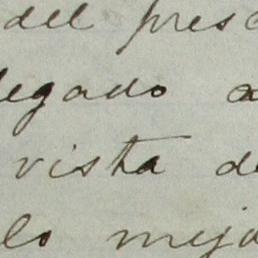 del pres
legado a
vista de
lo mejo